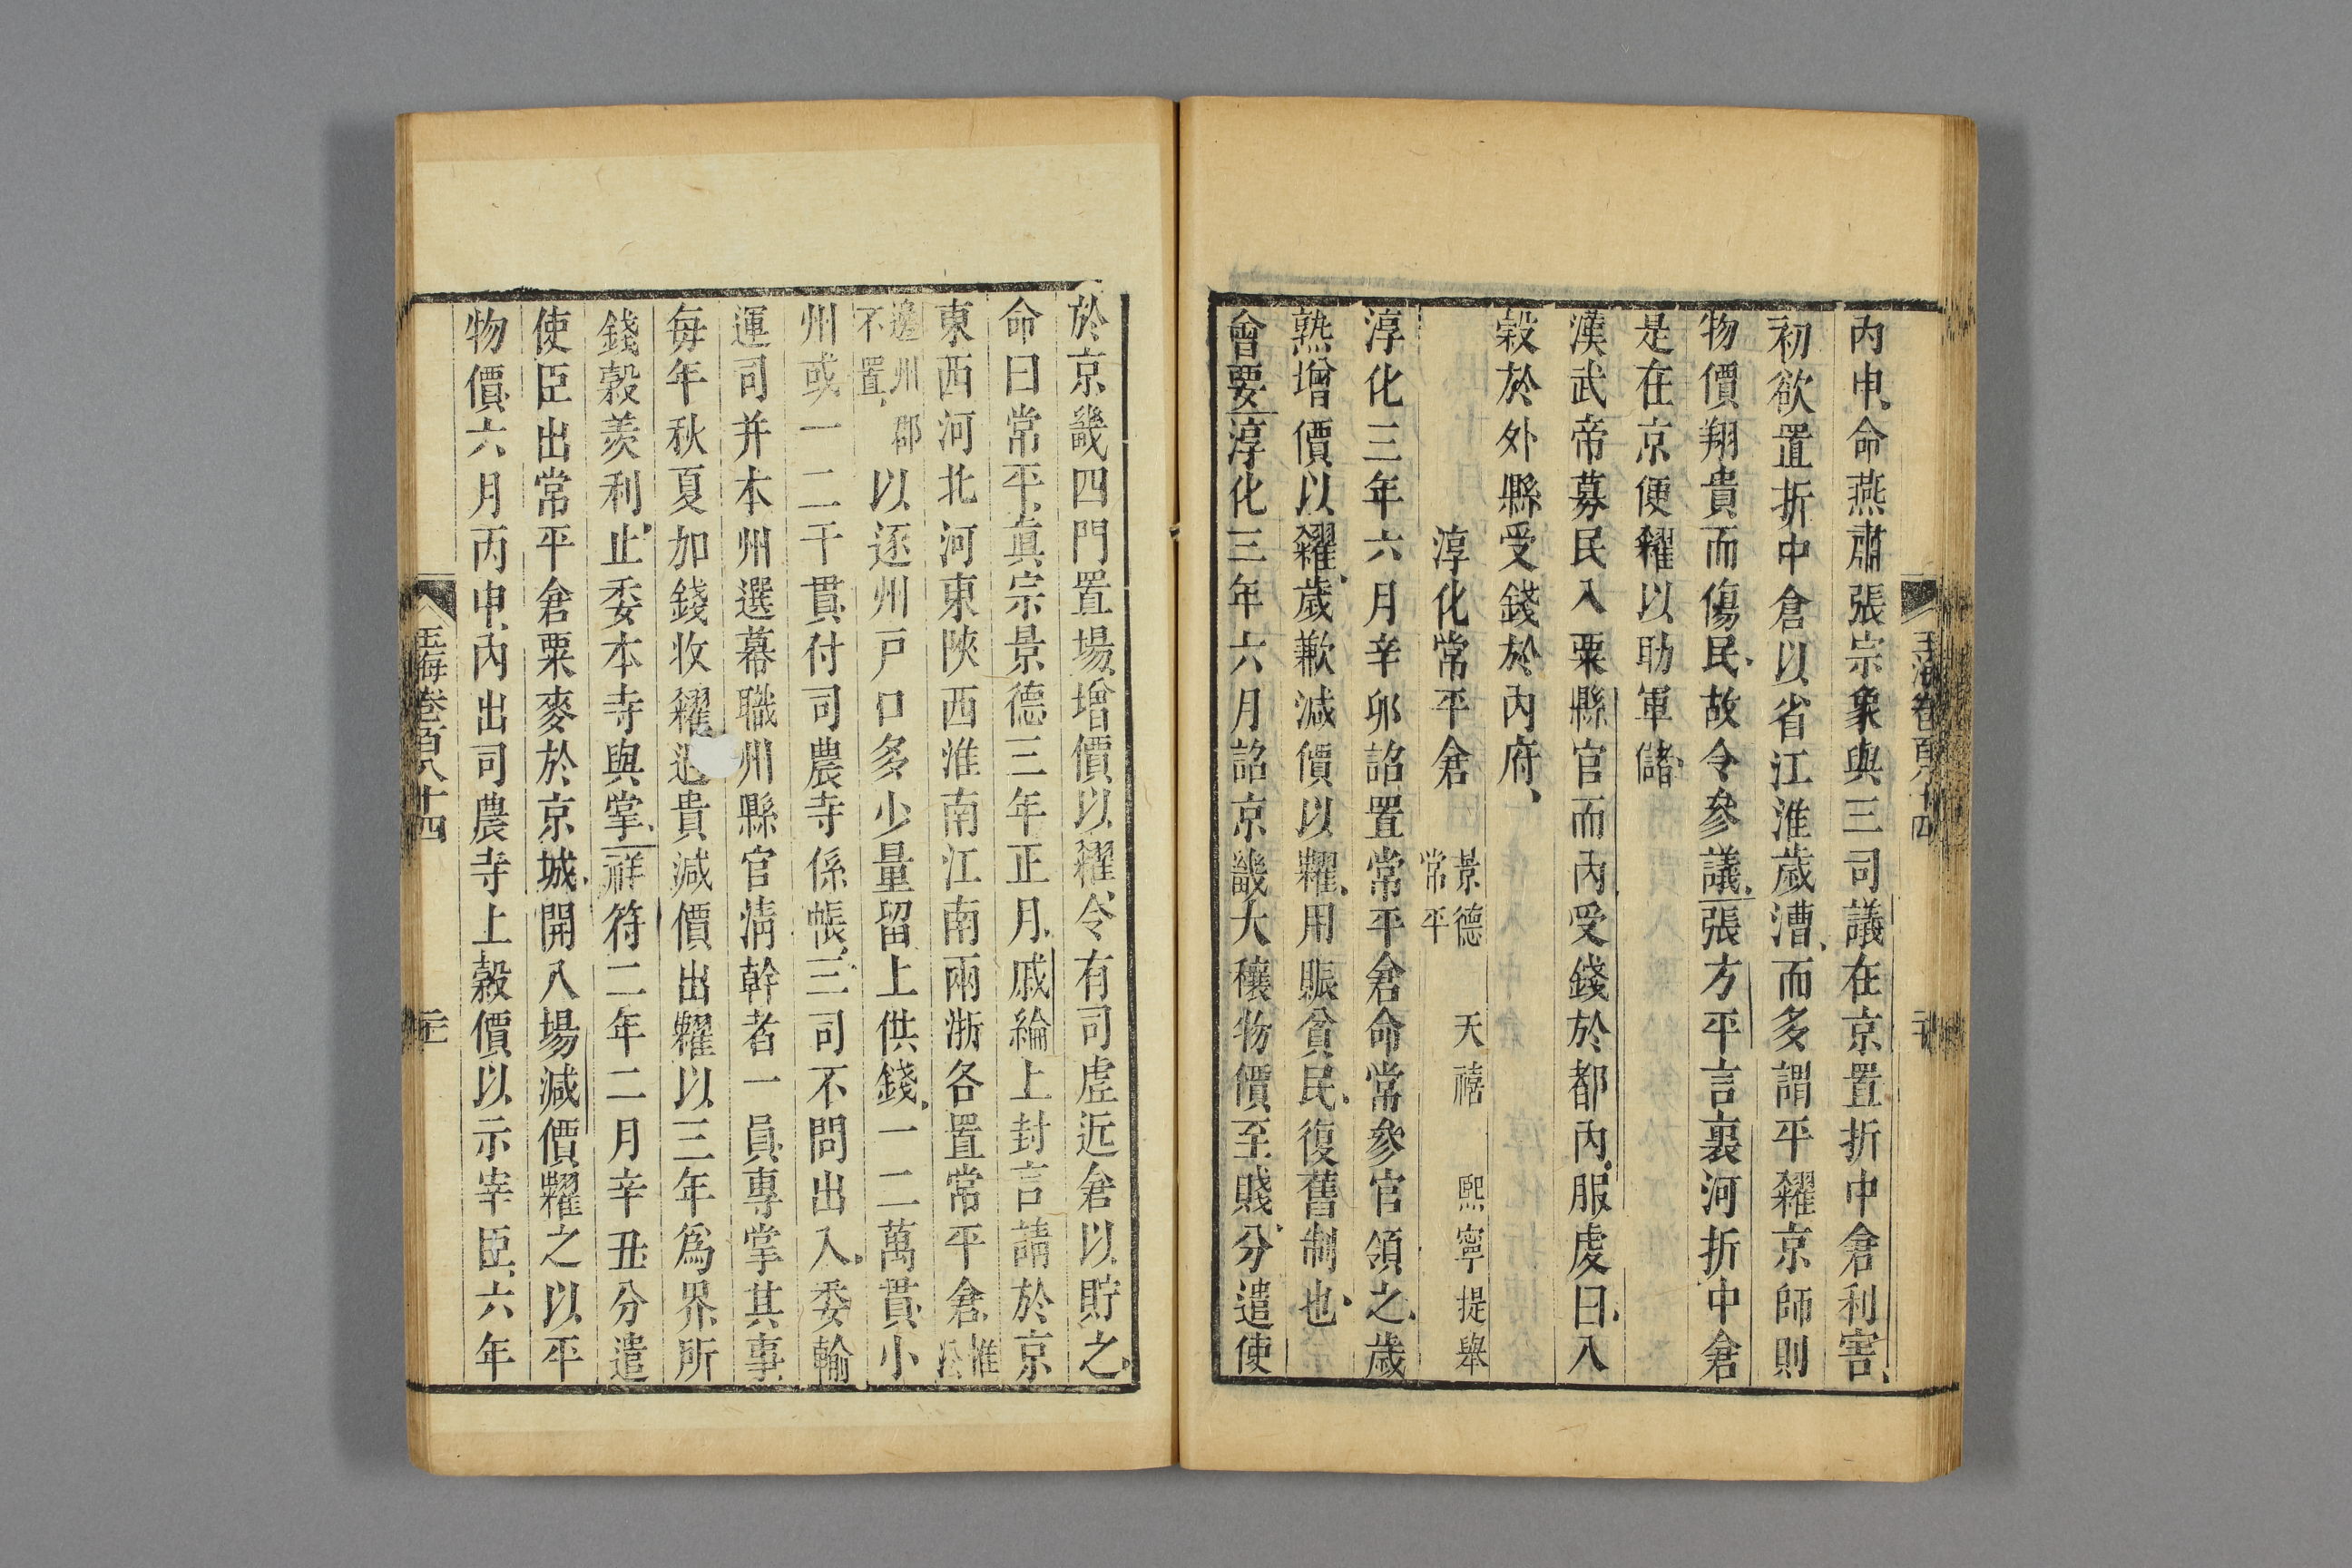 丙申命燕肅張宗象與三司議在京置折中倉利害
初欲置折中倉以省江淮歲漕而多謂平糴京師則
物價翔貴而傷民故令參議張方平言裏河折中倉
是在京便糴以助軍儲
漢武帝募民入粟縣官而內受錢於都內服虔曰入
穀於外縣受錢於內府
淳化常平倉 景德常平 天禧 熙寧提舉
淳化三年六月辛卯詔置常平倉命常參官領之歲
熟增價以糴歲歉減價以糶用賑貧民復舊制也
會要淳化三年六月詔京畿大穰物價至賤分遣使
玉海卷百八十四
於京畿四門置場增價以糴令有司虛近倉以貯之
命曰常平真宗景德三年正月戚綸上封言請於京
東西河北河東陝西淮南江南兩浙各置常平倉惟沿
邊州郡不置以逐州戶口多少量留上供錢一二萬貫小
州或一二千貫付司農寺係帳三司不問出入委輸
運司并本州選幕職州縣官清幹者一員專掌其事
每年秋夏加錢收糴遇貴減價出糶以三年為界所
錢穀羨利止委本寺與掌祥符二年二月辛丑分遣
使臣出常平倉粟麥於京城開八場減價糶之以平
物價六月丙申內出司農寺上穀價以示宰臣六年
玉海卷百八十四